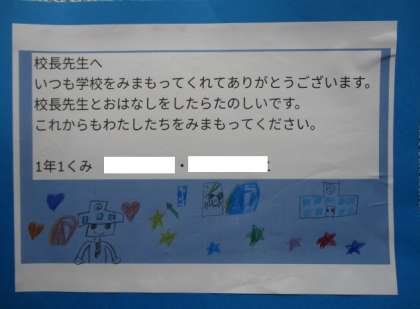 校長先生へ
いつも学校をみまもってくれてありがとうございます。
校長先生とおはなしをしたらたのしいです。
これからもわたしたちをみまもってください。
1年1くみ ・